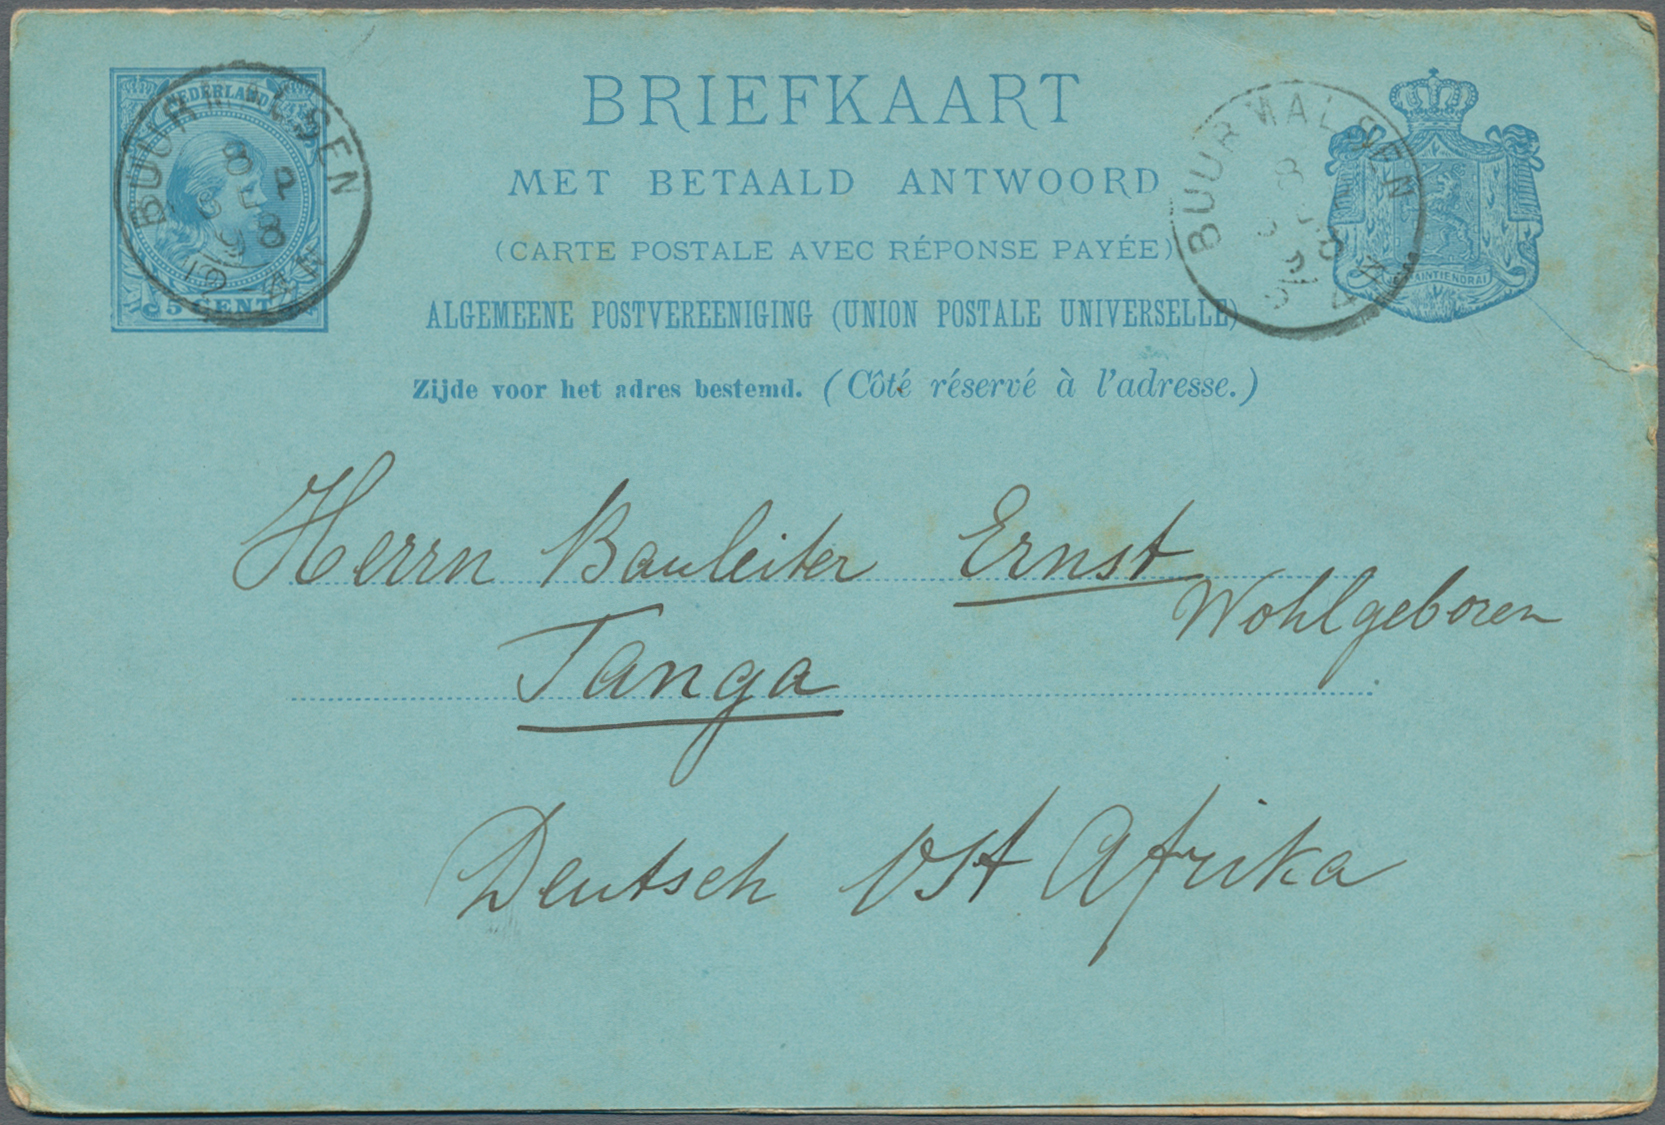 BRIEFKAART
MET BETAALD ANTWOORD
(CARTE POSTALE AVEC RÉPONSE PAYÉE)
ALGEMEENE POSTVEREENIGING (UNION POSTALE UNIVERSELLE)
Zijde voor het adres bestemd. (Côté réservé à l'adresse.)
NEDERLAND
5 CENT
BUURMALSEN
8 SEP
98
BUURMALSEN
8
Herrn Bauleiter Ernst
Wohlgeboren
Tanga
Deutsch Ost Afrika